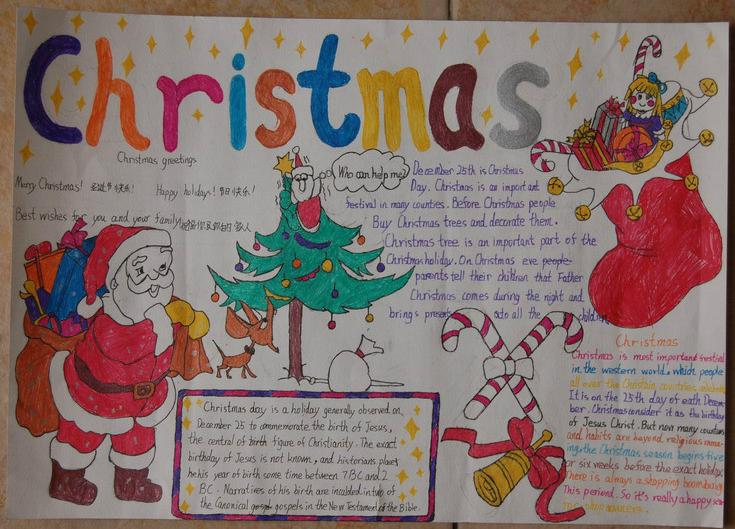 Christmas
Christmas greetings
Merry Christmas! 圣诞节快乐! Happy holidays! 节日快乐!
Best wishes for you and your family
Who can help me?
December 25th is Christmas
Day. Christmas is an important
festival in many countries. Before Christmas people
Buy Christmas trees and decorate them.
Christmas tree is an important part of the
Christmas holiday. On Christmas eve people
parents tell their children that Father
Christmas comes during the night and
brings presents to all the children
Christmas day is a holiday generally observed on
December 25 to commemorate the birth of Jesus,
the central of birth figure of Christianity. The exact
birthday of Jesus is not known, and historians places
he his year of birth some time between 7 BC and 2
BC. Narratives of his birth are included in two of
the Canonical gospels in the New Testament of the Bible.
Christmas
Christmas is most important festival
in the western world. which people
all over the Christain countries celebrate
It is on the 25th day of each Decem-
ber. Christmas consider it as the birthday
of Jesus Christ. But now many customs
and habits are beyond religious mea-
ing. the Christmas season begins five
or six weeks before the exact holiday
There is always a shopping boom during
This periend. So it's really a happy